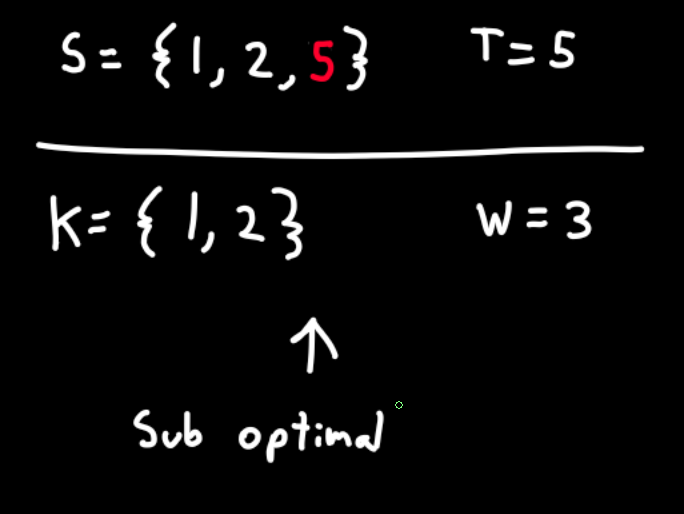 S = {1, 2, 5} T = 5
K = {1, 2} W = 3
Sub optimal